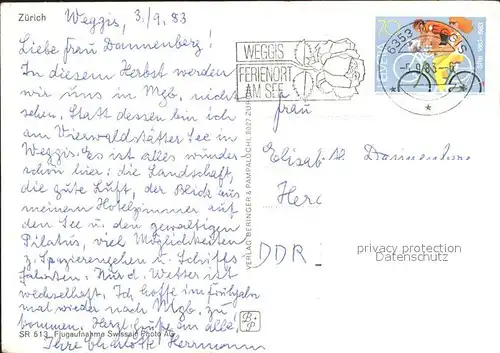 Zürich
Weggis, 3./9. 83
Liebe Frau Dannenberg!
In diesem Herbst werden
wir uns in Mgb. nicht
sehen. Statt dessen bin ich
am Vierwaldstätter See in
Weggis. Es ist alles wunder-
schön hier: die Landschaft,
die gute Luft, der Blick aus
meinem Hotelzimmer auf
den See u. den gewaltigen
Pilatus, viel Möglichkeiten
z. Spazierengehen u. Schiffs
fahrten. Nur d. Wetter ist
wechselhaft. Ich hoffe im Frühjahr
mal wieder nach Mgb. zu
kommen. Herzl. Grüße an alle!
Ihre Herrmann
SR 513 Flugaufnahme Swissair Photo AG
VERLAG BERINGER & PAMPALUCHI, 8027 ZÜRICH
B+P
WEGGIS
FERIENORT
AM SEE
6353
70
HELVETIA
1883-1983
Frau
Elisab. Dannenberg
Herc
DDR
privacy protection
Datenschutz